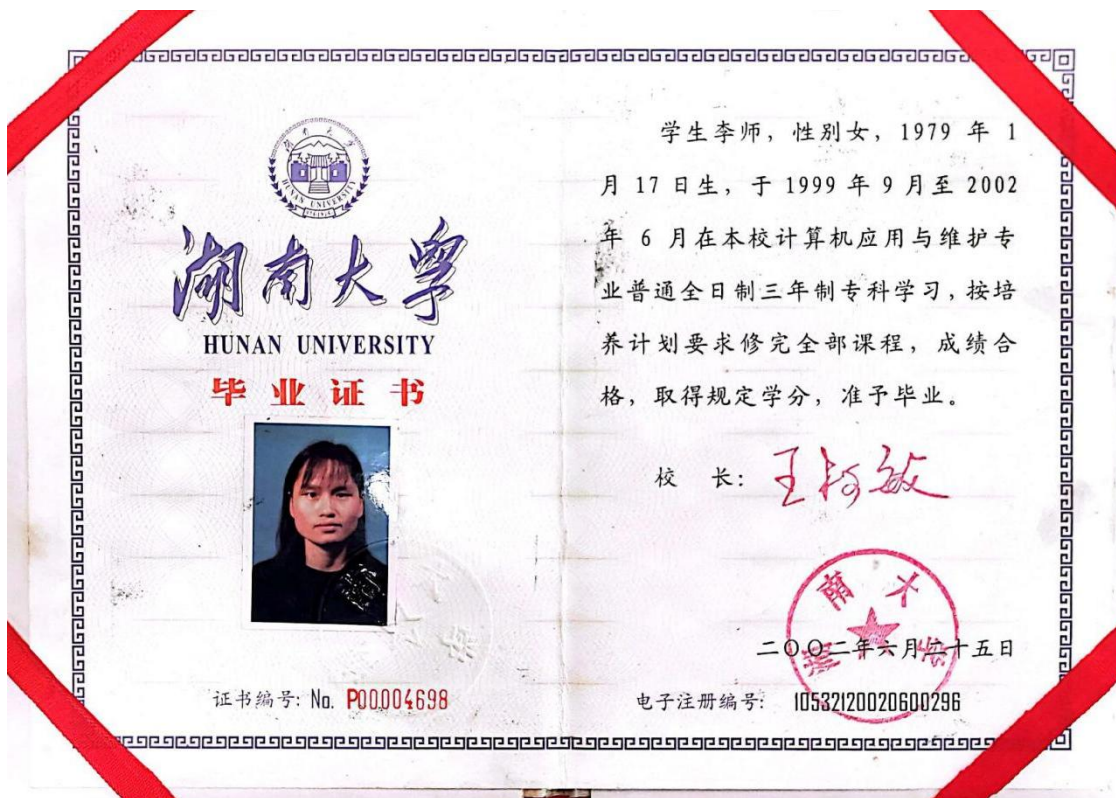 湖南大学
HUNAN UNIVERSITY
湖南大学
HUNAN UNIVERSITY
毕业证书
证书编号: No. P00004698
学生李师，性别女，1979 年 1
月 17 日生，于 1999 年 9 月至 2002
年 6 月在本校计算机应用与维护专
业普通全日制三年制专科学习，按培
养计划要求修完全部课程，成绩合
格，取得规定学分，准予毕业。
校 长: 王柯敏
湖南大学
二〇〇二年六月二十五日
电子注册编号: 10532120020600296